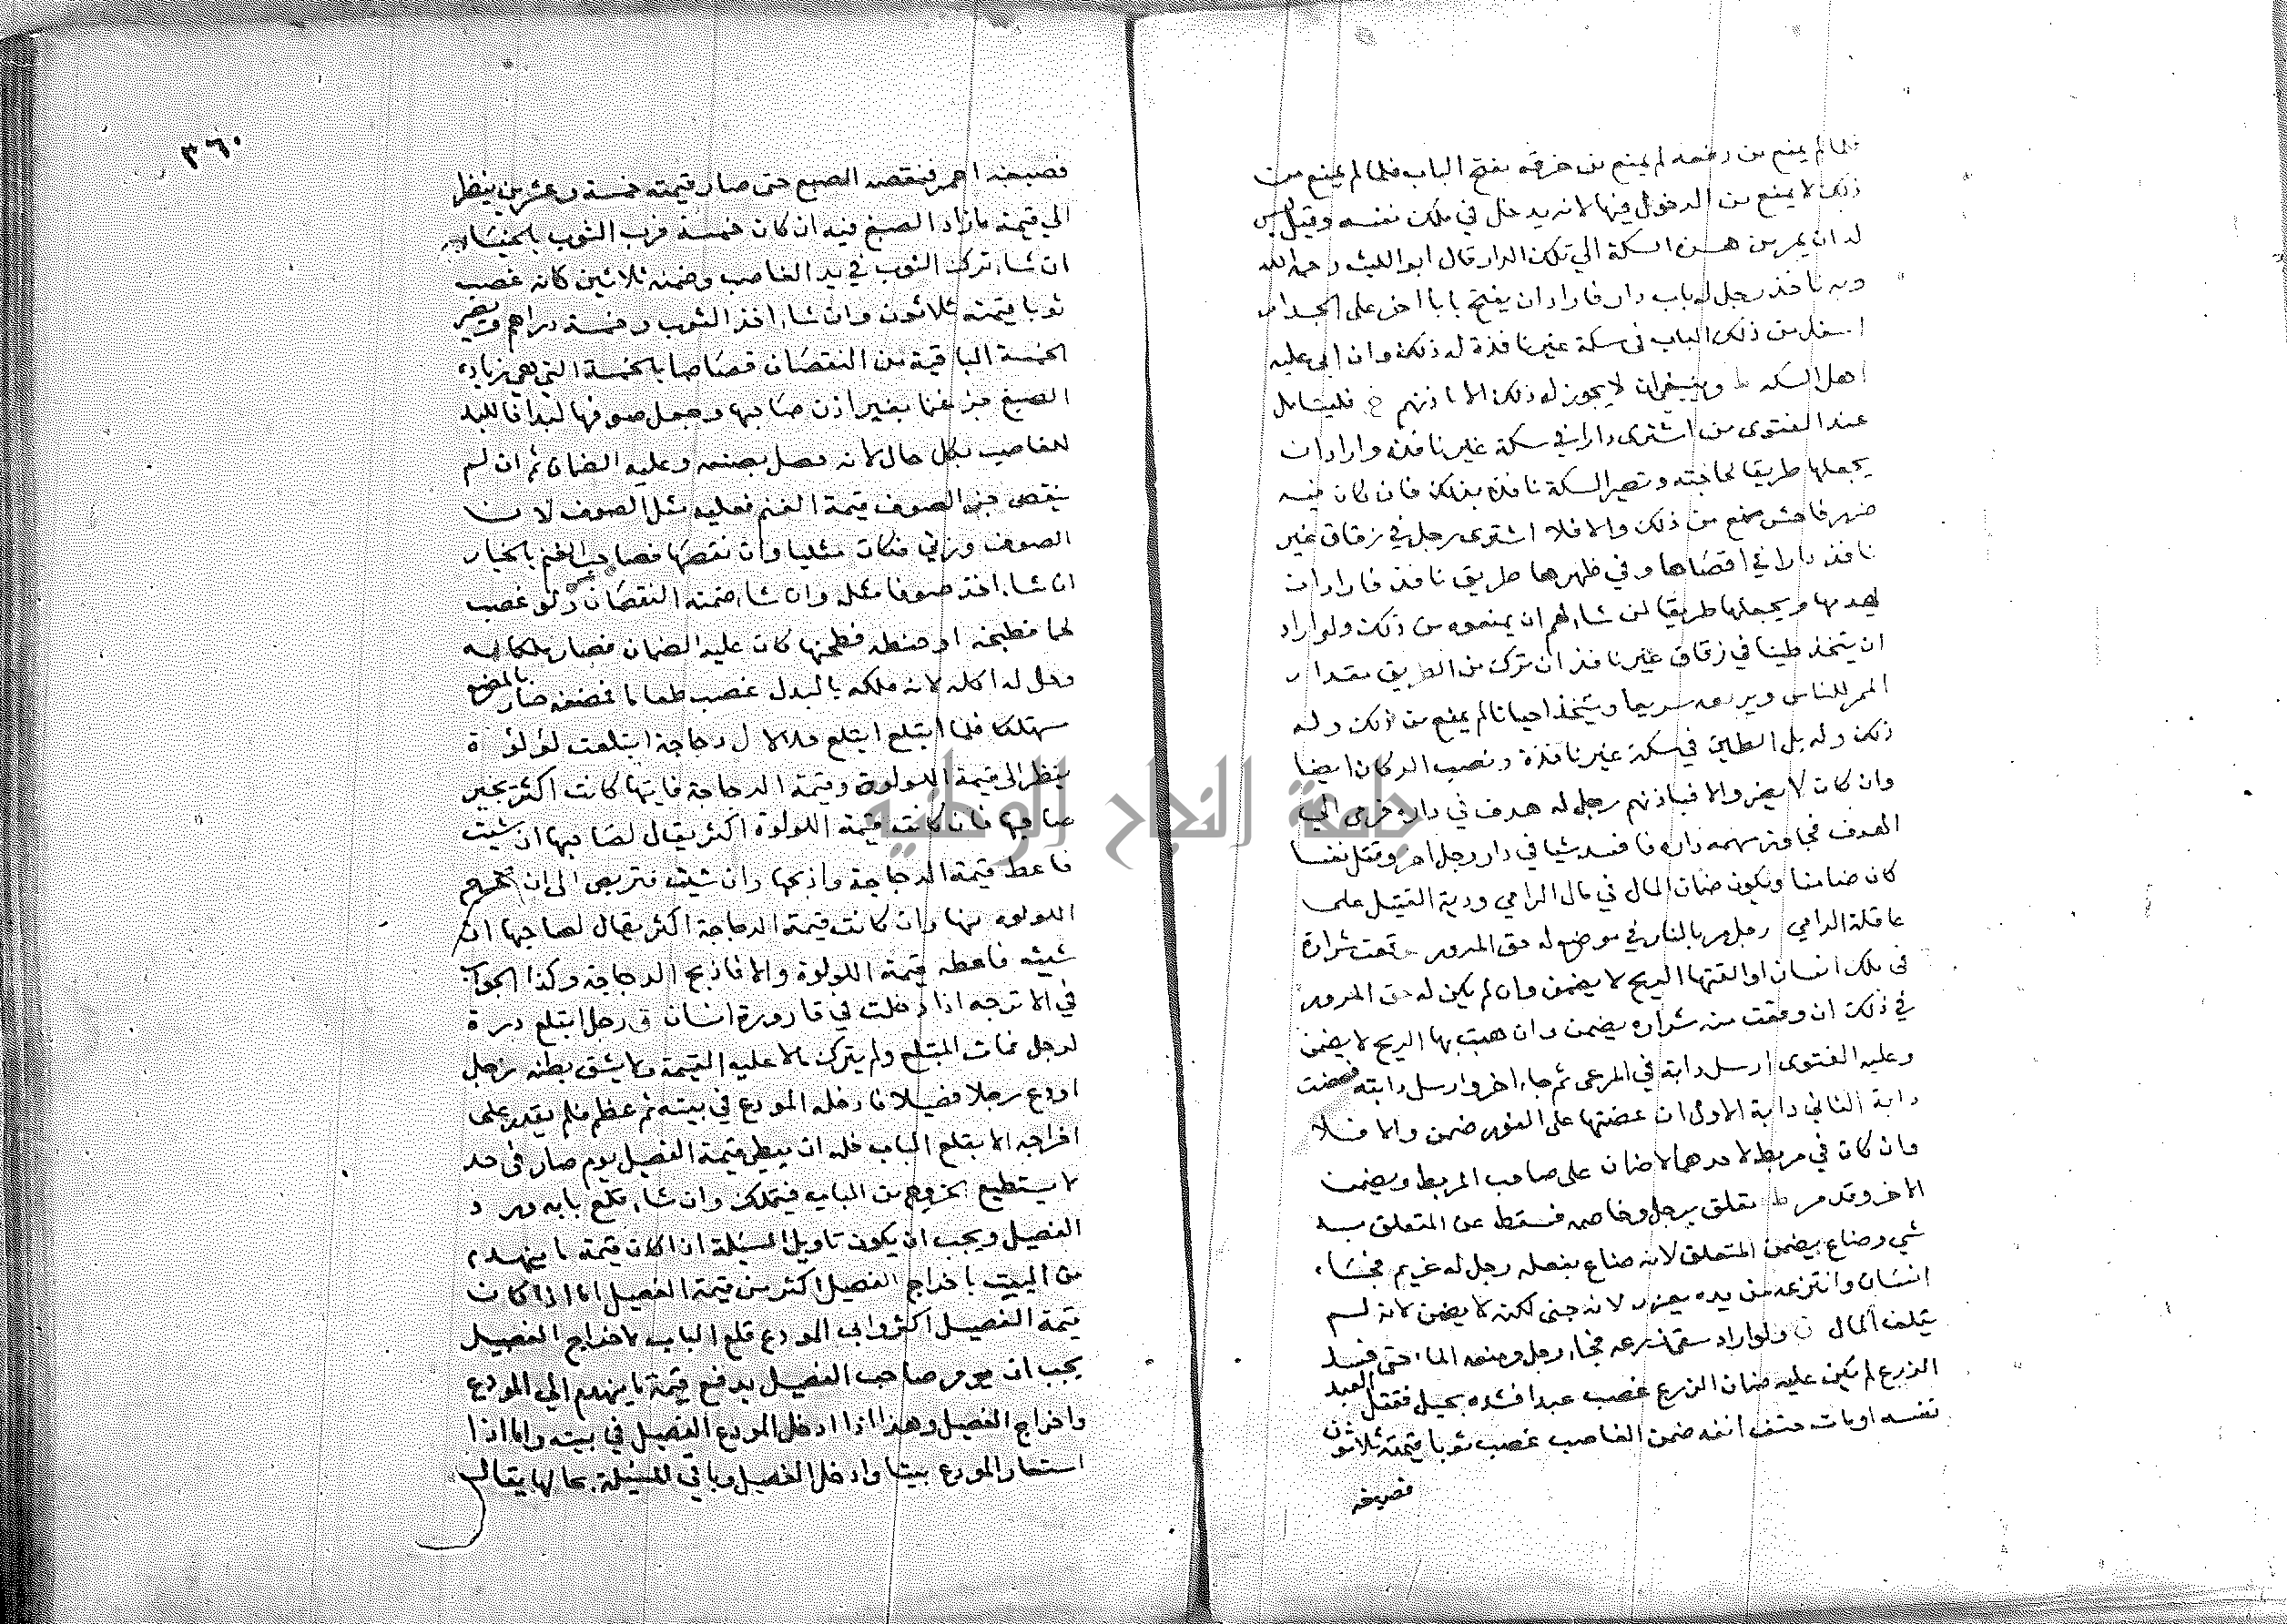 فلما لم يمنع من رفعه لم يمنع من خرقه بفتح الباب فلما لم يمنع من
ذلك لا يمنع من الدخول فيها لانه يدخل في ملك نفسه وقيل ليس
له ان يمر من هذه السكة الى تلك الدار قال ابو الليث رحمه الله
وبه ناخذ رجل له باب دار فاراد ان يفتح بابا اخر على الجدار
اسفل من ذلك الباب في سكة غير نافذة له ذلك وان ابى عليه
اهل السكه ط وينبغي ان لا يجوز له ذلك الا باذنهم فليتامل
عند الفتوى من اشترى دارا في سكة غير نافذه واراد ان
يجعلها طريقا لحاجته وتصير السكة نافذه بذلك فان كان فيه
ضرر فاحش يمنع من ذلك والا فلا اشترى رجل في زقاق غير
نافذ دارا في اقصاها وفي ظهرها طريق نافذ فاراد ان
يهدمها ويجعلها طريقا لمن شاء لهم ان يمنعوه من ذلك ولو اراد
ان يتخذ طينا في زقاق غير نافذ ان ترك من الطريق مقدار
الممر للناس ويرفعه سريعا ويتخذ احيانا لم يمنع من ذلك وله
ذلك وله بل الطين في سكة غير نافذة ونصب الدكان ايضا
وان كان لا يضر والا فباذنهم رجل له هدف في داره فرمى الى
الهدف فجاوز سهمه داره فافسد شيا في دار رجل اخر وقتل نفسا
كان ضامنا ويكون ضمان المال في مال الرامي ودية القتيل على
عاقلة الرامي رجل مر بالنار في موضع له حق المرور وقعت شرارة
في ملك انسان او القتها الريح لا يضمن وان لم يكن له حق المرور
في ذلك ان وقعت منه شراره يضمن وان هبت بها الريح لا يضمن
وعليه الفتوى ارسل دابة في المرعى ثم جاء اخر وارسل دابته فعضت
دابة الثاني دابة الاول ان عضتها على الفور ضمن والا فلا
وان كان في مربط لاحدهما لا ضمان على صاحب المربط ويضمن
الاخر وقد مر ط تعلق برجل وخاصمه فسقط عن المتعلق به
شي وضاع يضمن المتعلق لانه ضاع بفعله رجل له غريم فجاء
انسان وانتزعه من يده يعزر لانه جنى لكنه لا يضمن لانه لم
يتلف المال ن ولو اراد سقي زرعه فجاء رجل ومنعه الماء حتى فسد
الزرع لم يكن عليه ضمان الزرع غصب عبدا فشده بحبل فقتل العبد
نفسه او مات حتف انفه ضمن الغاصب غصب ثوبا قيمته ثلاثون
فصبغه
٣٦٠
فصبغه احمر فنقصه الصبغ حتى صار قيمته خمسة وعشرين ينظر
الى قيمة ما زاد الصبغ فيه ان كان خمسة فرب الثوب بالخيار
ان شاء ترك الثوب في يد الغاصب وضمنه ثلاثين كانه غصب
ثوبا قيمته ثلاثون وان شاء اخذ الثوب وخمسة دراهم ويصير
الخمسة الباقية من النقصان قصاصا بالخمسة التي هي زيادة
الصبغ جز غنما بغير اذن صاحبها وجعل صوفها لبدا فاللبد
للغاصب بكل حال لانه حصل بصنعه وعليه الضمان ثم ان لم
ينقص جز الصوف قيمة الغنم فعليه مثل الصوف لان
الصوف وزني فكان مثليا وان نقصها فصاحب الغنم بالخيار
ان شاء اخذ صوفا مثله وان شاء ضمنه النقصان ولو غصب
لحما فطبخه او حنطه فطحنها كان عليه الضمان فصار ملكا له
وحل له اكله لانه ملكه بالبدل غصب طعاما فمضغه صار بالمضغ
مستهلكا فلما ابتلع ابتلع حلالا ل دجاجة ابتلعت لؤلؤة
ينظر الى قيمة اللولوة وقيمة الدجاجة فايتها كانت اكثر يخير
صاحبها فان كانت قيمة اللولوة اكثر يقال لصاحبها ان شيت
فاعط قيمة الدجاجة واذبحها وان شيت فتربص الى ان تخرج
اللولوه منها وان كانت قيمة الدجاجة اكثر يقال لصاحبها ان
شيت فاعطه قيمة اللولوة والا فاذبح الدجاجة وكذا الجواب
في الاترجه اذا دخلت في قارورة انسان في رجل ابتلع درة
لرجل فمات المبتلع ولم يترك مالا عليه القيمة ولا يشق بطنه رجل
اودع رجلا فصيلا فادخله المودع في بيته ثم عظم فلم يقدر على
اخراجه الا بقلع الباب فله ان يعطي قيمة الفصيل يوم صار في حد
لا يستطيع الخروج من الباب فيتملك وان شاء قلع بابه ورد
الفصيل ويجب ان يكون تاويل المسئلة اذا كان قيمة ما ينهدم
من البيت باخراج الفصيل اكثر من قيمة الفصيل اما اذا كانت
قيمة الفصيل اكثر وابى المودع قلع الباب لاخراج الفصيل
يجب ان يومر صاحب الفصيل بدفع قيمة ما ينهدم الى المودع
واخراج الفصيل وهذا اذا ادخل المودع الفصيل في بيته واما اذا
استعار المودع بيتا وادخل الفصيل وباقي المسئلة بحالها يقال
جامعة النجاح الوطنية